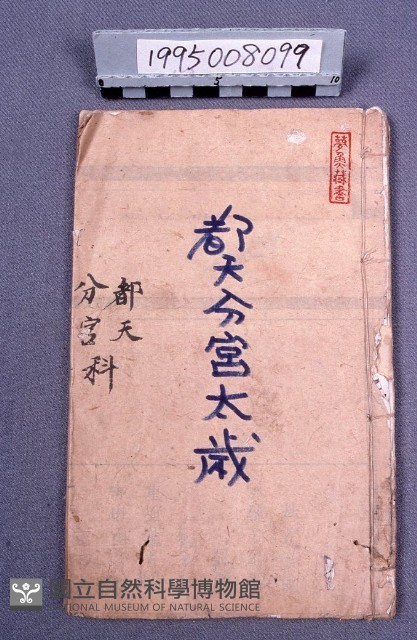 1995008099
0 5 10
都天分宮太歲
都天
分宮科
國立自然科學博物館
NATIONAL MUSEUM OF NATURAL SCIENCE